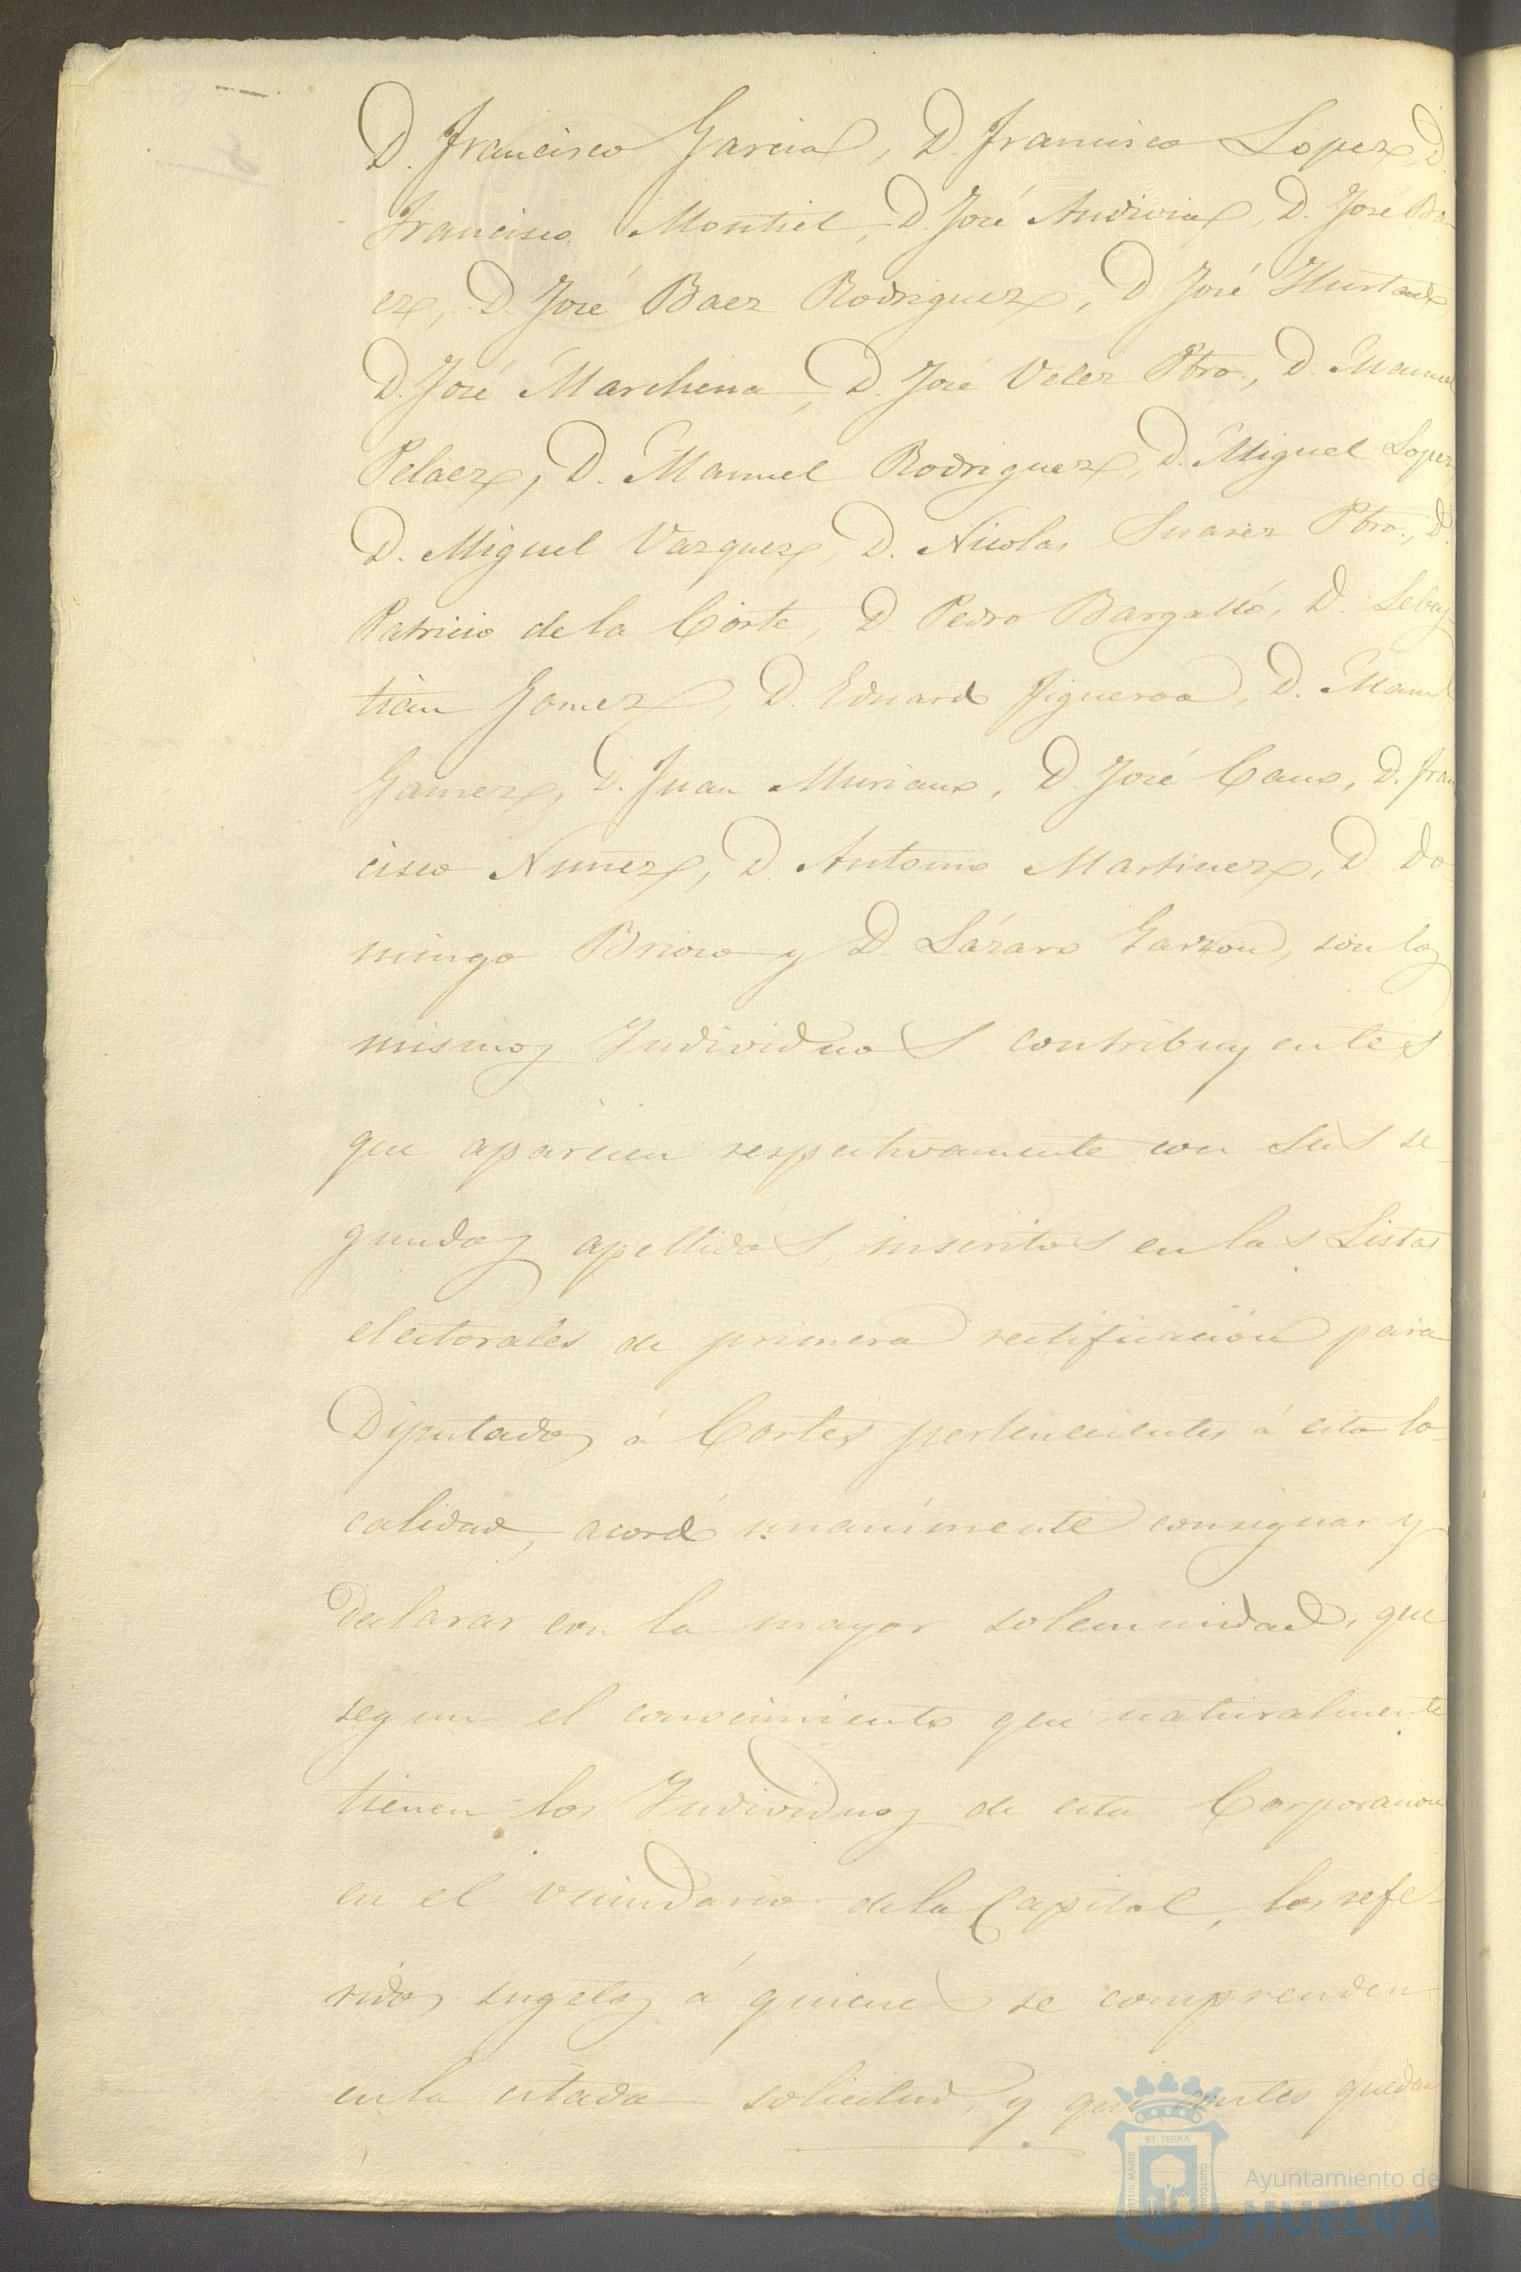 D. Francisco Garcia, D. Francisco Lopez, D.
Francisco Montiel, D. José Andivia, D. José Ba-
ez, D. José Baez Rodriguez, D. José Hurtado
D. José Marchena, D. José Velez Pbro., D. Manuel
Pelaez, D. Manuel Rodriguez, D. Miguel Lopez,
D. Miguel Vazquez, D. Nicolas Suarez Pbro., D.
Patricio de la Corte, D. Pedro Bargalló, D. Sebas-
tian Gomez, D. Eduardo Figueroa, D. Manuel
Gamez, D. Juan Muriano, D. José Cano, D. Fran
cisco Nuñez, D. Antonio Martinez, D. Do-
mingo Brioso y D. Lázaro Garzon, son los
mismos Individuos contribuyentes
que aparecen respectivamente con sus se-
gundos apellidos, inscritos en las Listas
electorales de primera rectificacion para
Diputados á Cortes pertenecientes á esta lo-
calidad, acordó unanimente consignar y
declarar con la mayor solemnidad, que
segun el conocimiento que naturalmente
tienen los Individuos de esta Corporacion
en el vecindario de la Capital, los refe-
ridos sugetos á quienes se comprenden
en la citada solicitud, y que antes quedan
ET TERRÆ
Ayuntamiento de
HUELVA